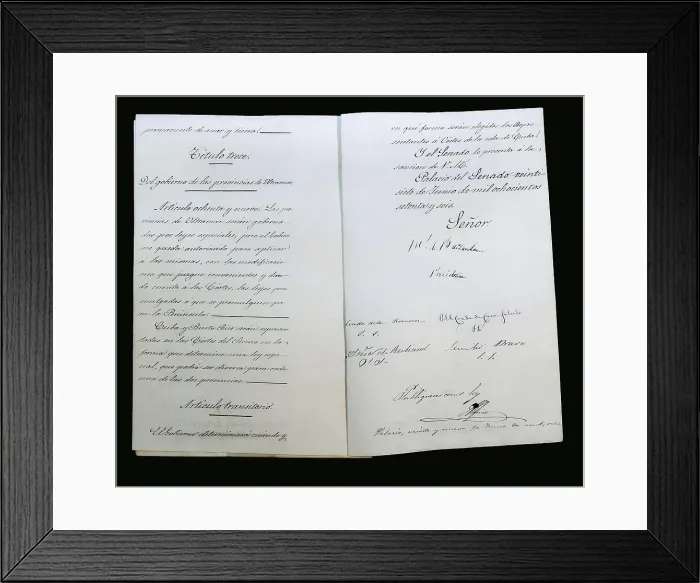 permanente de mar y tierra.
Título trece.
Del gobierno de las provincias de Ultramar.
Artículo ochenta y nueve. Las pro-
vincias de Ultramar serán goberna-
das por leyes especiales; pero el Gobier-
no queda autorizado para aplicar
á las mismas, con las modificacio-
nes que juzgue convenientes y dan-
do cuenta á las Cortes, las leyes pro-
mulgadas ó que se promulguen pa-
ra la Península.
Cuba y Puerto Rico serán represen-
tadas en las Cortes del Reino en la
forma que determine una ley espe-
cial, que podrá ser diversa para cada
una de las dos provincias.
Artículo transitorio.
El Gobierno determinará cuándo y
en qué forma serán elegidos los Repre-
sentantes á Cortes de la isla de Cuba.
Y el Senado lo presenta á la
sancion de V. M.
Palacio del Senado veinti-
siete de Junio de mil ochocientos
setenta y seis.
Señor
Presidente
S. S.
Bravo
S. S.
Publíquese como ley
Alfonso
Palacio, veinte y nueve de Junio de mil